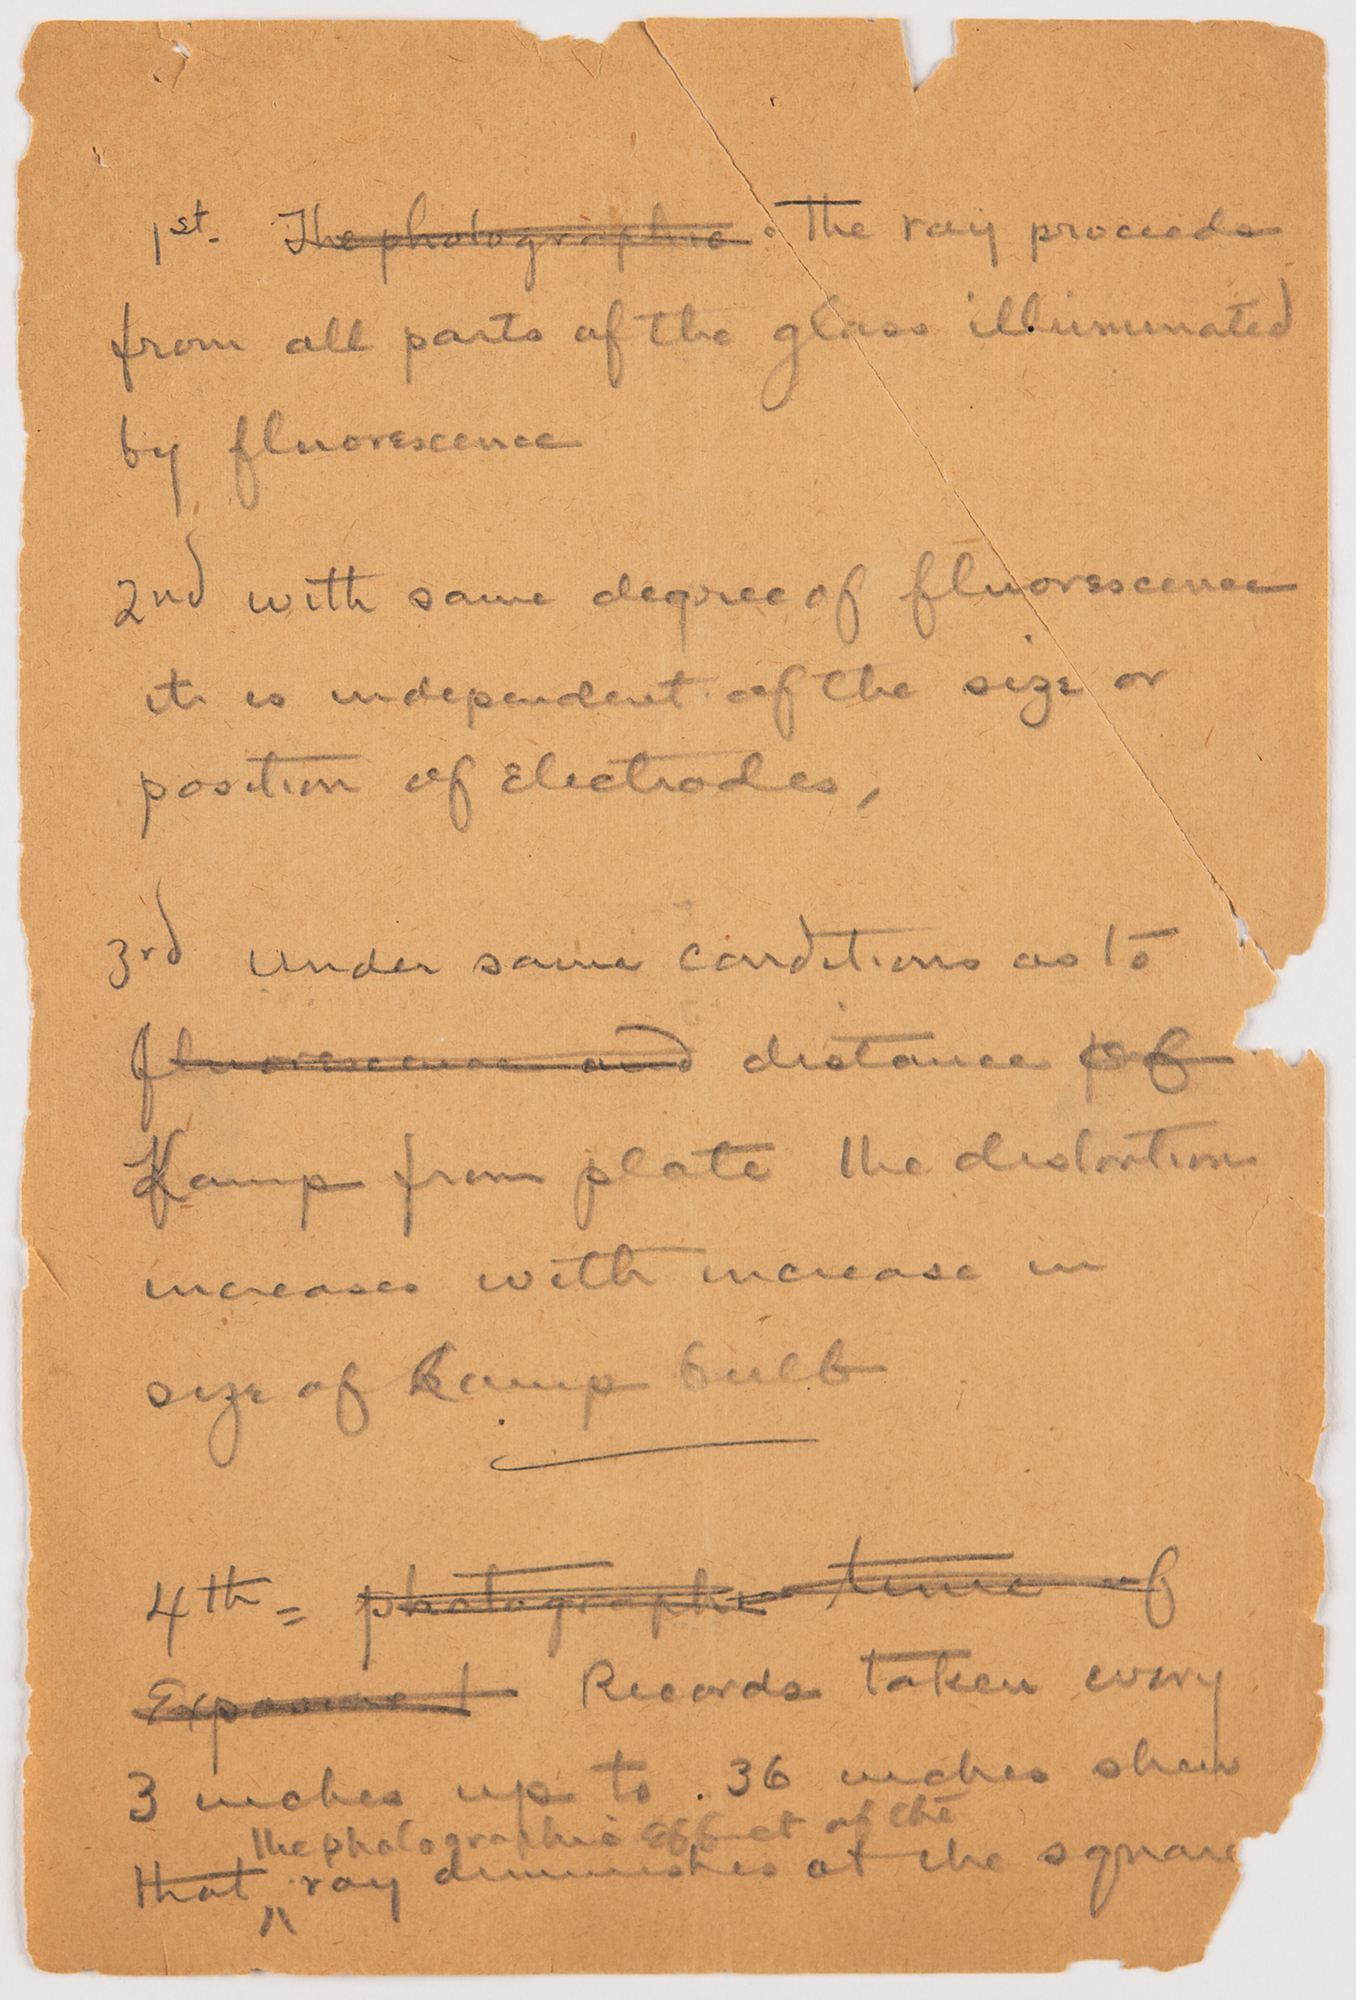 1st. The photographic : the ray proceeds
from all parts of the glass illuminated
by fluorescence
2nd with same degree of fluorescence
it is independent of the size or
position of Electrodes,
3rd under same conditions as to
fluorescence and distance of
Lamp from plate the distortion
increases with increase in
size of Lamp bulb
4th = photographic time of
Exposure Records taken every
3 inches up to .36 inches shew
the photographic Effect of the
that ray diminishes at the square